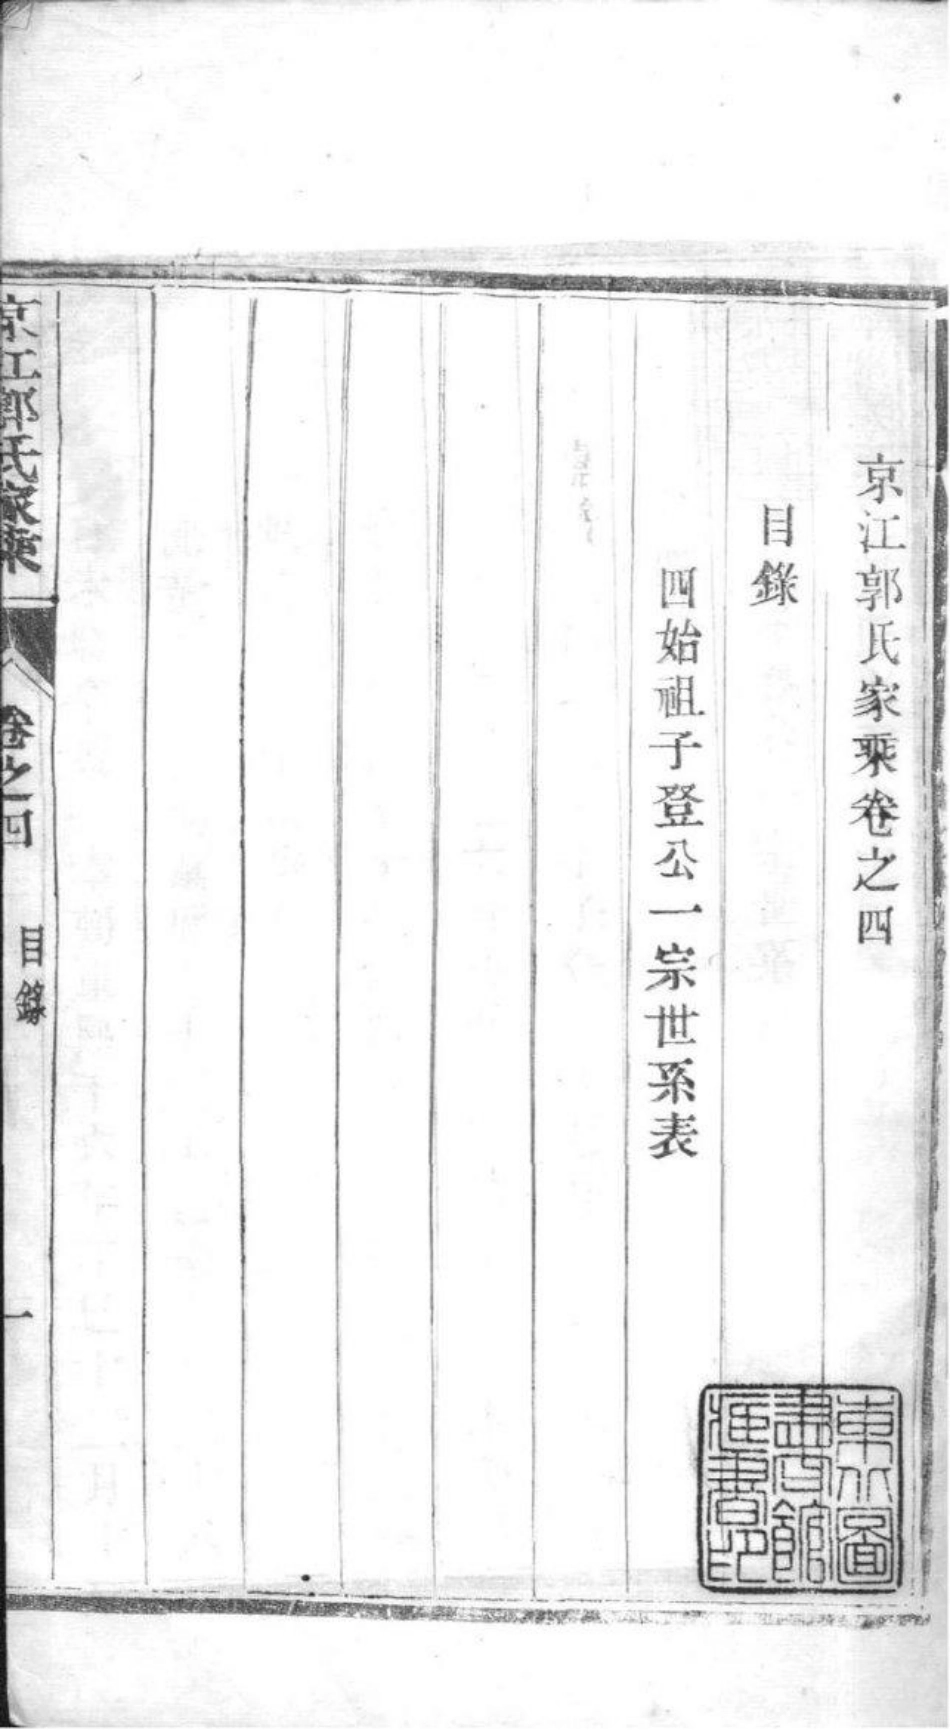 京江郭氏家乘卷之四
目錄
四始祖子登公一宗世系表
京江郭氏家乘
卷之四
目錄
一
東北圖
書館